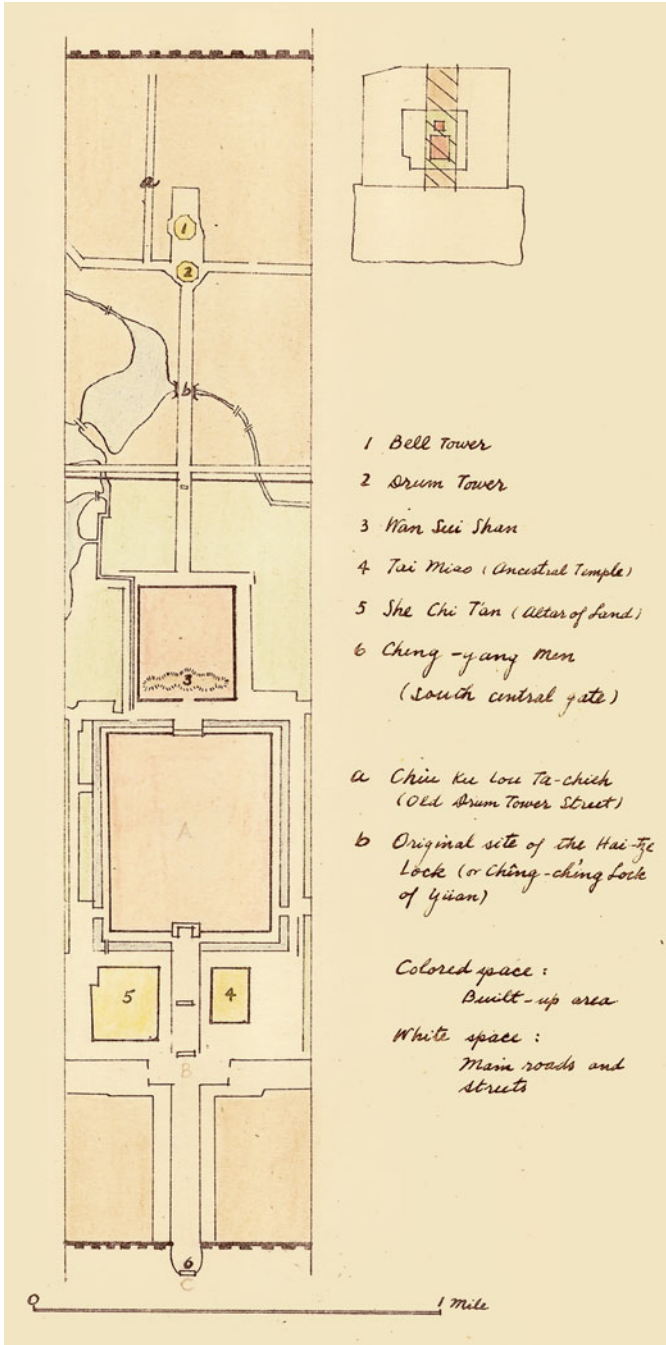 a
1
2
b
3
A
5
4
B
6
C
0 1 Mile
1 Bell Tower
2 Drum Tower
3 Wan Sui Shan
4 Tai Miao (Ancestral Temple)
5 She Chi T'an (Altar of Land)
6 Cheng-yang Men
(south central gate)
a Chiu Ku Lou Ta-chieh
(Old Drum Tower Street)
b Original site of the Hai-tze
Lock (or Chêng-ch'ing Lock
of Yüan)
Colored space:
Built-up area
White space:
Main roads and
streets